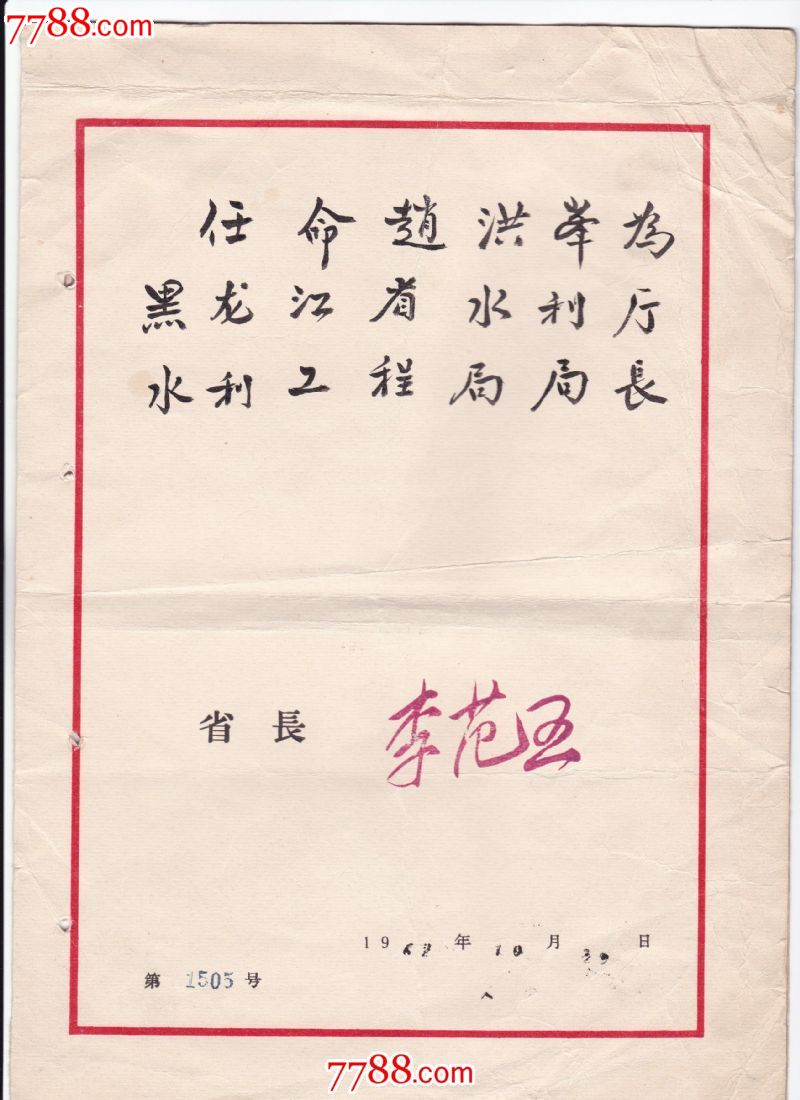 7788.com
任命趙洪峯為
黑龙江省水利厅
水利工程局局長
省長 李范五
196 年10月30日
第 1505 号
7788.com